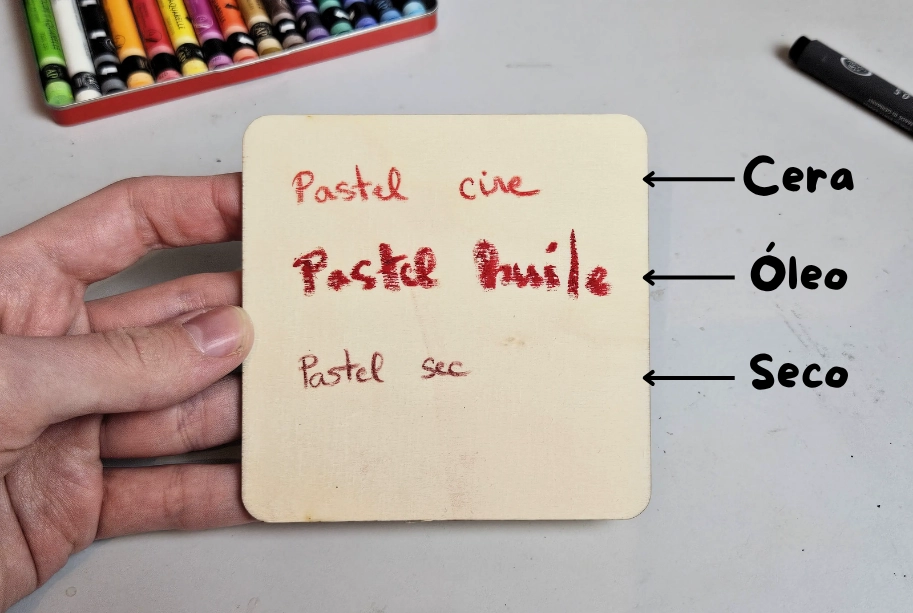 Pastel cire
Cera
Pastel huile
Óleo
Pastel sec
Seco